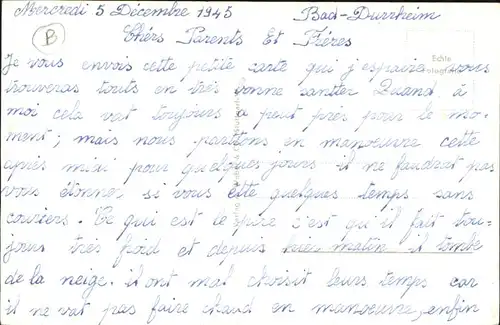 Mercredi 5 Décembre 1945 Bad-Durrheim
B
Chérs Parents Et Fréres
Echte
Je vous envois cette petite carte qui j'espaire vous
trouveras touts en très bonne santter Quand à
moi cela vat toujours a peut près pour le mo-
ment; mais nous partons en manoeuvre cette
après midi pour quelques jours il ne faudrat pas
vous étonner si vous ette quelques temps sans
couriers. Ce qui est le pire c'est qu'il fait tou-
jours très froid et depuis hier matin il tombe
de la neige. il ont mal choisit leurs temps car
il ne vat pas faire chaud en manoeuvre, enfin